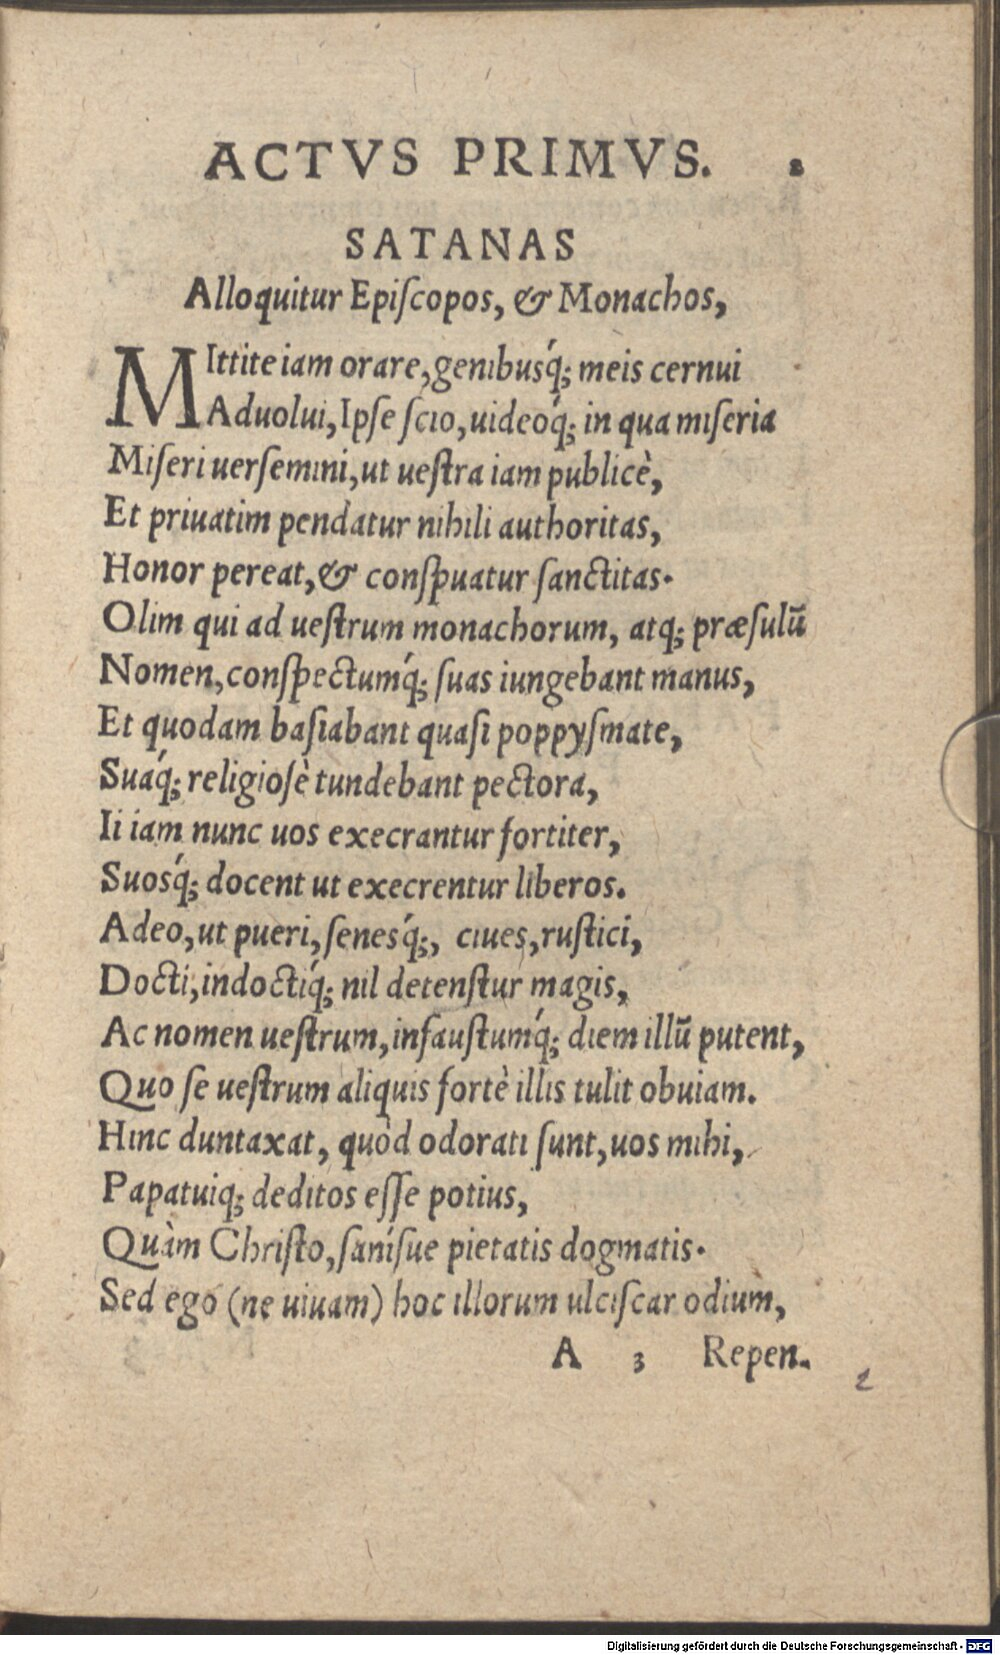 ACTVS PRIMVS. 2
SATANAS
Alloquitur Epiſcopos, & Monachos,
MIttite iam orare, genibusq́; meis cernui
Aduolui, Ipſe ſcio, uideoq́; in qua miſeria
Miſeri uerſemini, ut ueſtra iam publicè,
Et priuatim pendatur nihili authoritas,
Honor pereat, & conſpuatur ſanctitas.
Olim qui ad ueſtrum monachorum, atq; præſulū
Nomen, conſpectumq́; suas iungebant manus,
Et quodam baſiabant quaſi poppyſmate,
Suaq́; religioſè tundebant pectora,
Ii iam nunc uos execrantur fortiter,
Suosq́; docent ut execrentur liberos.
Adeo, ut pueri, ſenesq́;, ciues, ruſtici,
Docti, indoctiq́; nil detenſtur magis,
Ac nomen ueſtrum, infauſtumq́; diem illū putent,
Quo ſe ueſtrum aliquis fortè illis tulit obuiam.
Hinc duntaxat, quòd odorati ſunt, uos mihi,
Papatuiq; deditos eſſe potius,
Quàm Chriſto, ſaníſue pietatis dogmatis.
Sed ego (ne uiuam) hoc illorum ulciſcar odium,
A 3 Repen-
2
Digitalisierung gefördert durch die Deutsche Forschungsgemeinschaft - DFG